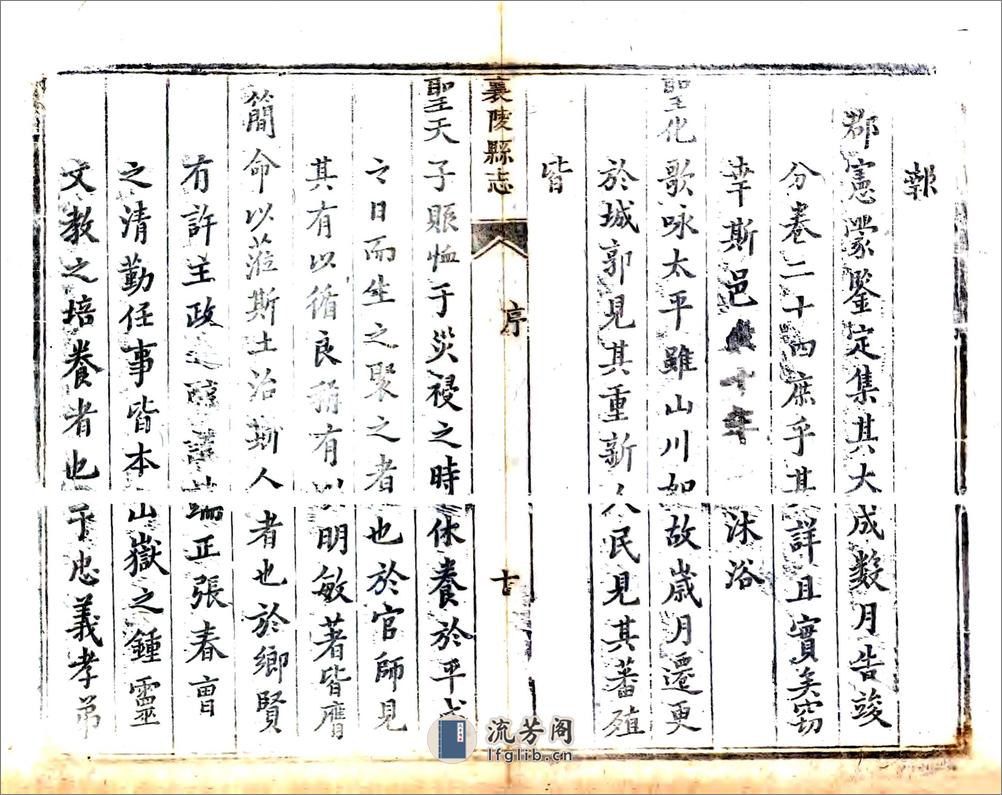 報
郡憲蒙鑒定集其大成數月告竣
分卷二十四庶乎其詳且實矣窃
幸斯邑 十年 沐浴
聖化歌咏太平雖山川如故歳月遷更
於城郭見其重新人民見其蕃殖
皆
襄陵縣志 序
聖天子賑恤于災祲之時休養於平成
之日而生之聚之者也於官師見
其有以循良稱有以明敏著皆膺
簡命以蒞斯土治斯人者也於鄉賢
有許主政之 端正張春曹
之清勤任事皆本山嶽之鍾靈
文教之培養者也于忠義孝弟
流芳阁
lfglib.cn